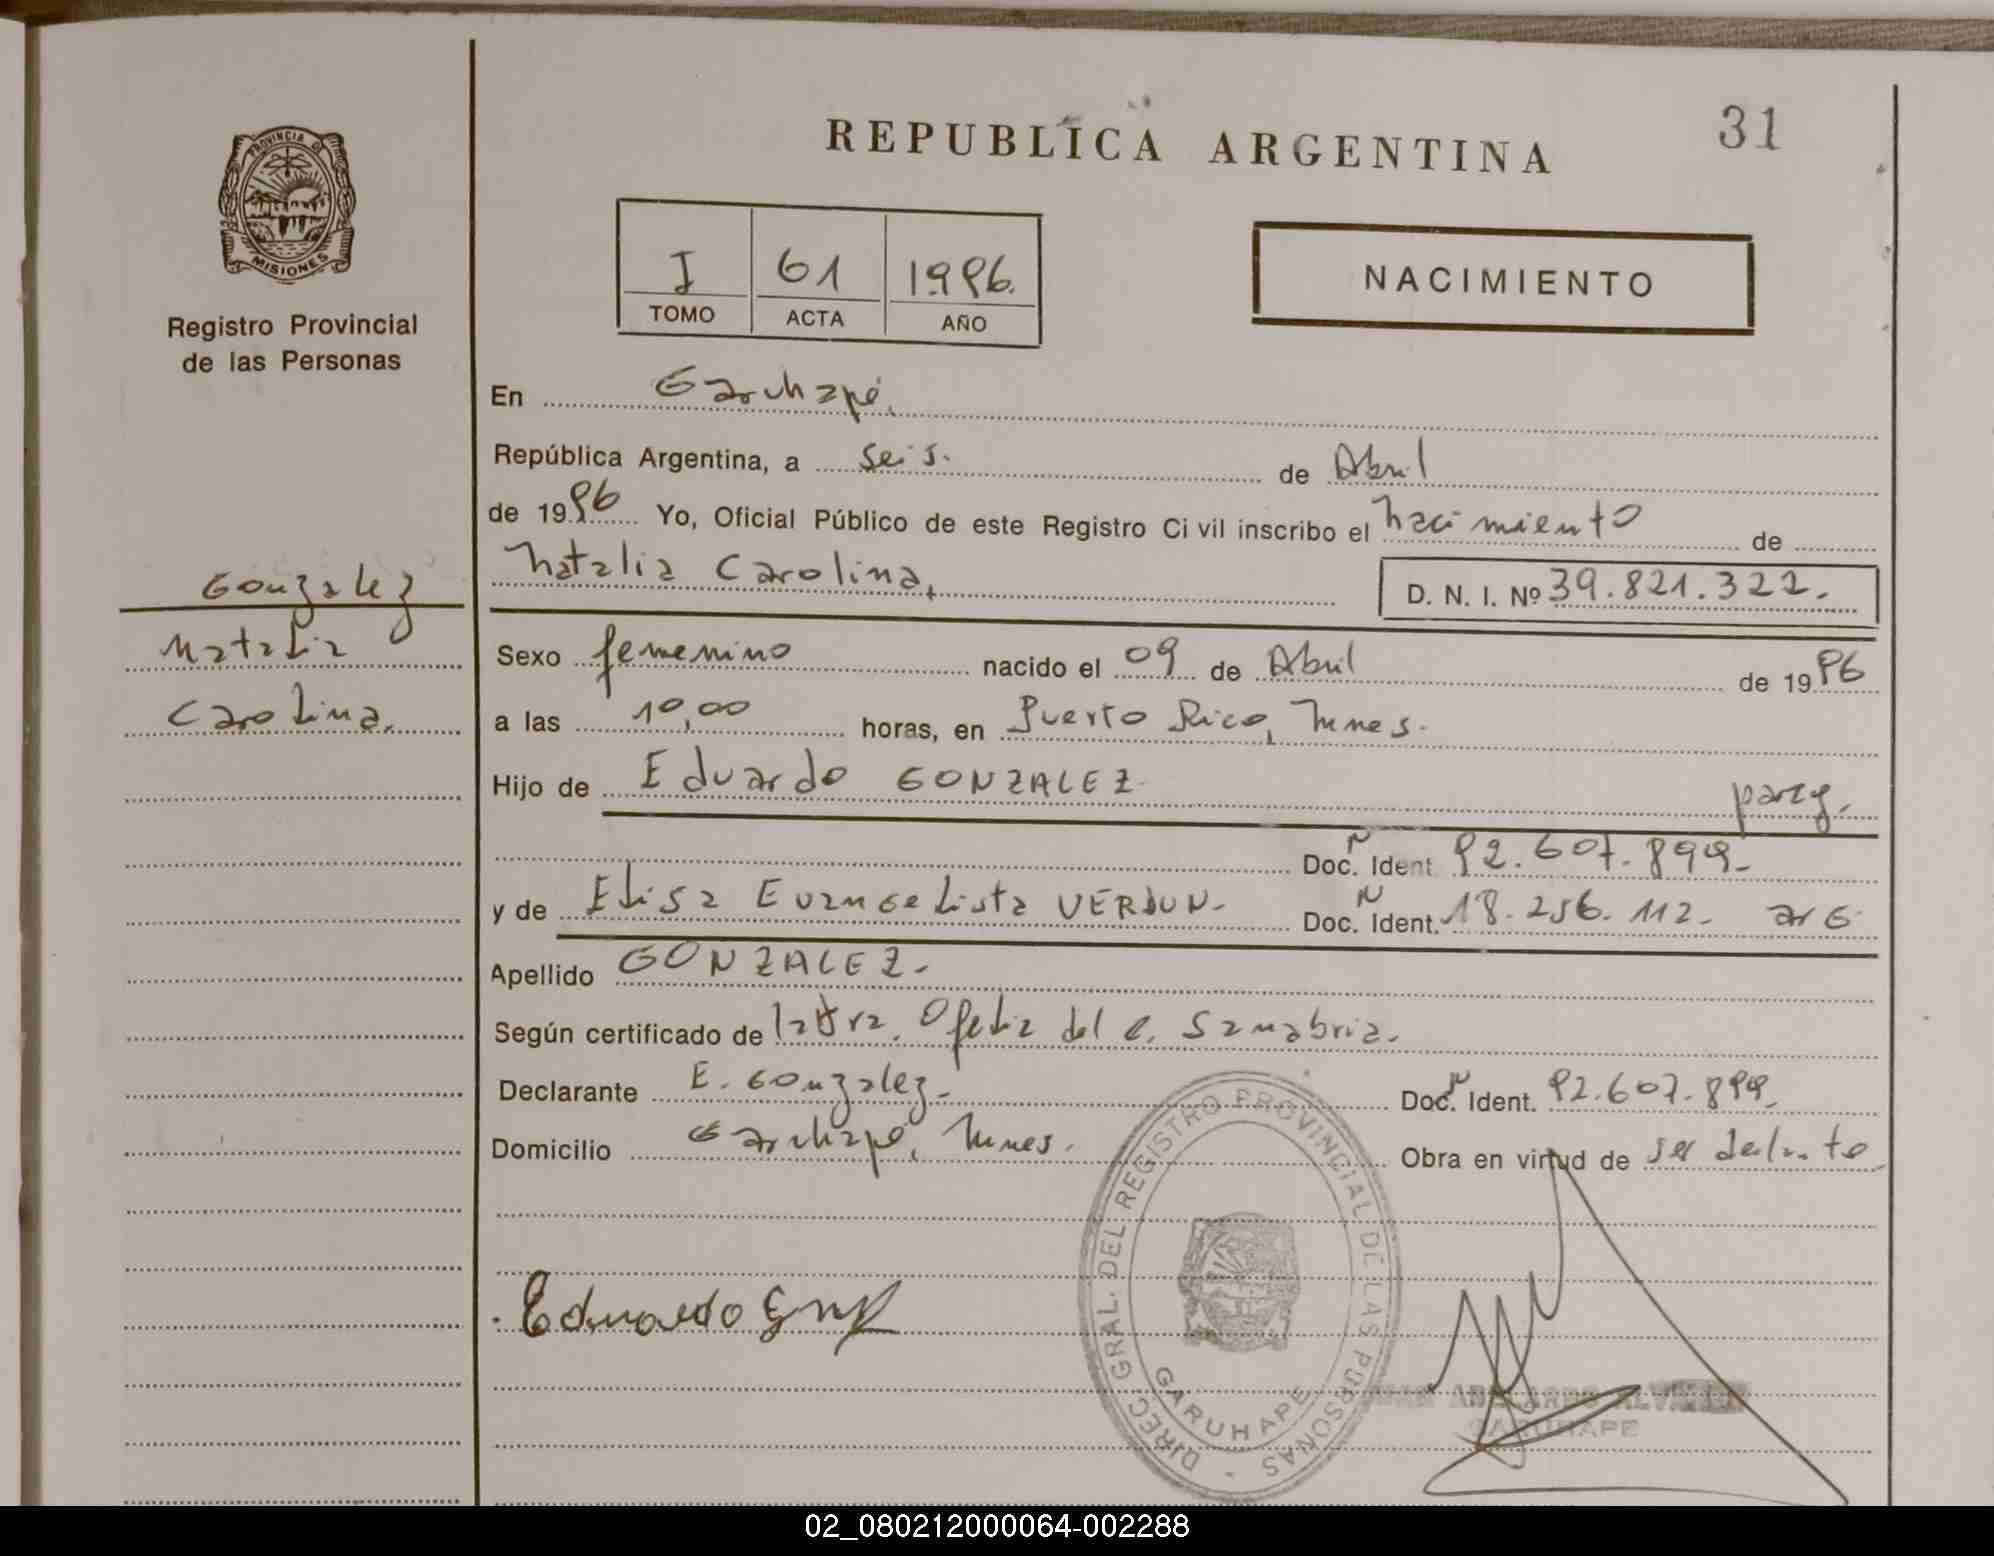 PROVINCIA DE
MISIONES
Registro Provincial
de las Personas
REPUBLICA ARGENTINA
31
I 61 1996.
TOMO ACTA AÑO
NACIMIENTO
En Garuhapé.
República Argentina, a seis. de Abril
de 1996 Yo, Oficial Público de este Registro Ci vil inscribo el nacimiento de
Natalia Carolina.
D. N. I. Nº 39.821.322.
Gonzalez
Natalia
Carolina.
Sexo femenino nacido el 09 de Abril de 1996
a las 10,00 horas, en Puerto Rico, Mnes.
Hijo de Eduardo GONZALEZ. parag.
Doc. N Ident. 92.607.899-
y de Elisa Evangelista VERDUN. Doc. N Ident. 18.256.112- arG.
Apellido GONZALEZ.
Según certificado de Ofelia del C. Sanabria.
Declarante E. Gonzalez- Doc. N Ident. 92.607.899-
Domicilio Garuhapé, Mnes. Obra en virtud de ser
Eduardo
DIREC. GRAL. DEL REGISTRO PROVINCIAL DE LAS PERSONAS -
GARUHAPE
ABELARDO
GARUHAPE
02_080212000064-002288